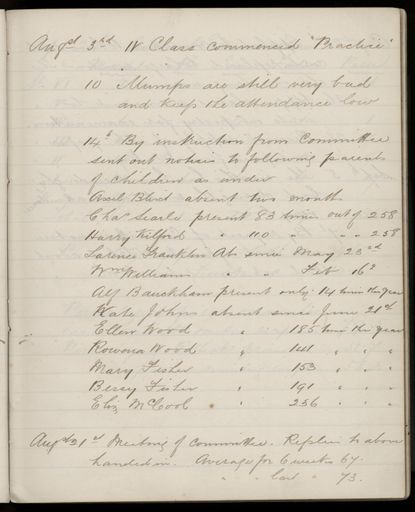 Augst 3rd IV Class commenced "Practice"
10 Mumps are still very bad
and keep the attendance low
14th By instruction from Committee
sent out notices to following parents
of children as under
absent two months
Chas Searle present 83 times out of 258
Harry Kilford " 110 " " " 258
Larence Franklin Ab. since May 23rd
Wm Williams " Feb 16th
Alf Bauckham present only 14 times the year
Kate Johns absent since June 21st
Ellen Wood " 185 times the year
Rowena Wood " 141 " " "
Mary Fisher " 153 " " "
Bessy Fisher " 191 " " "
Eliz McCool " 256 " " "
Augst 21st Meeting of Committee. Replies to above
handed in. Average for 6 weeks 67.
" " last " 73.